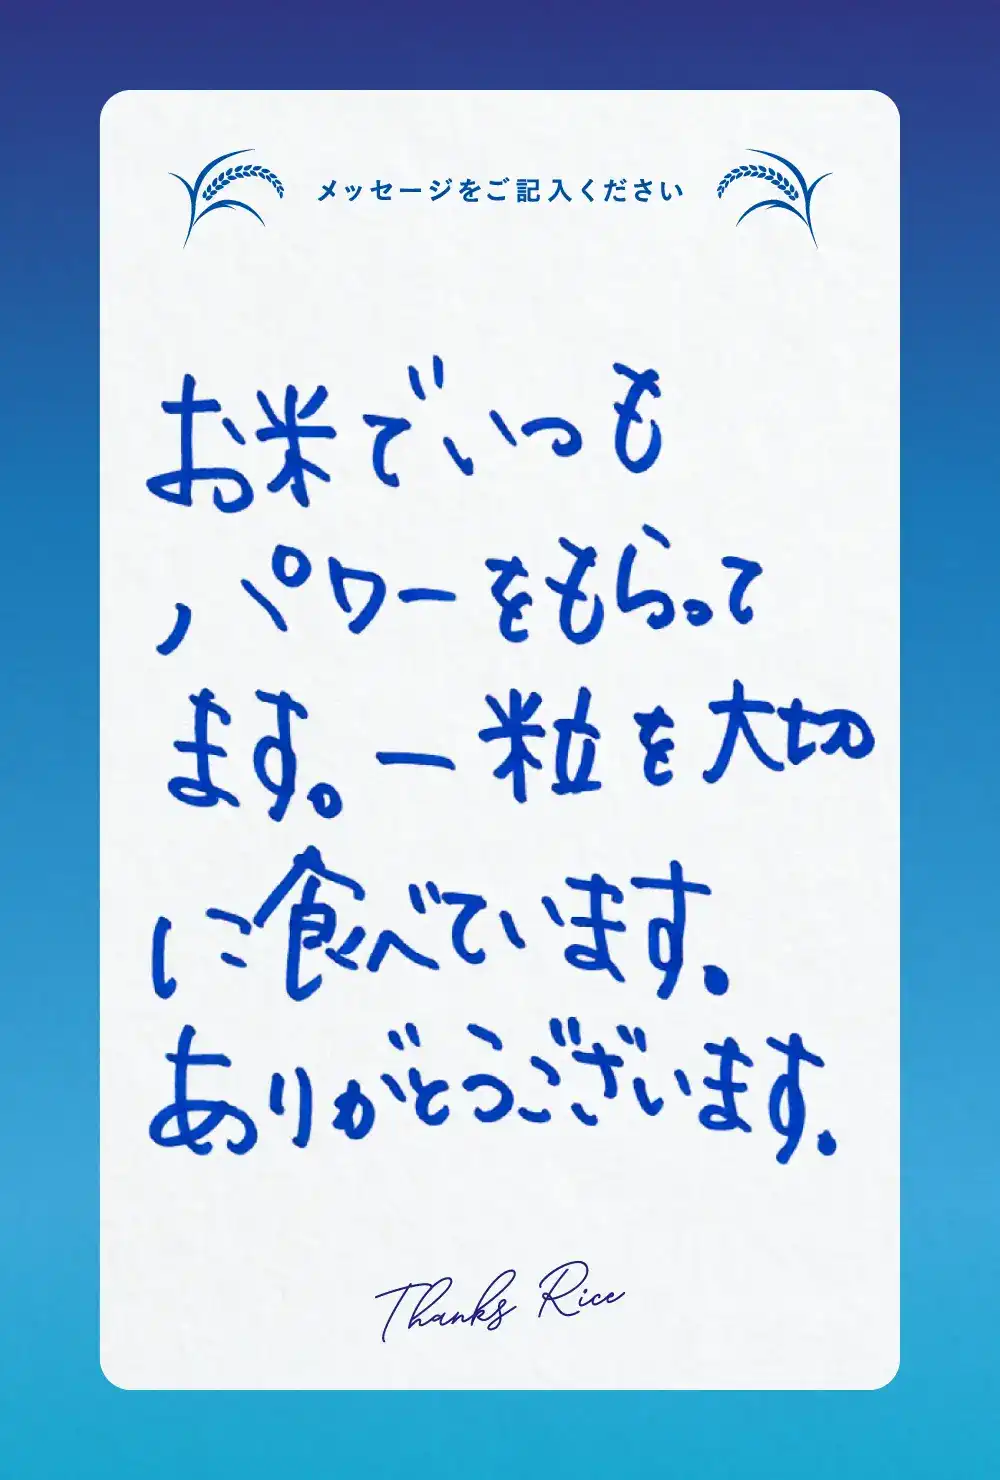 メッセージをご記入ください
お米でいつも
パワーをもらって
ます。一粒を大切
に食べています。
ありがとうございます.
Thanks Rice